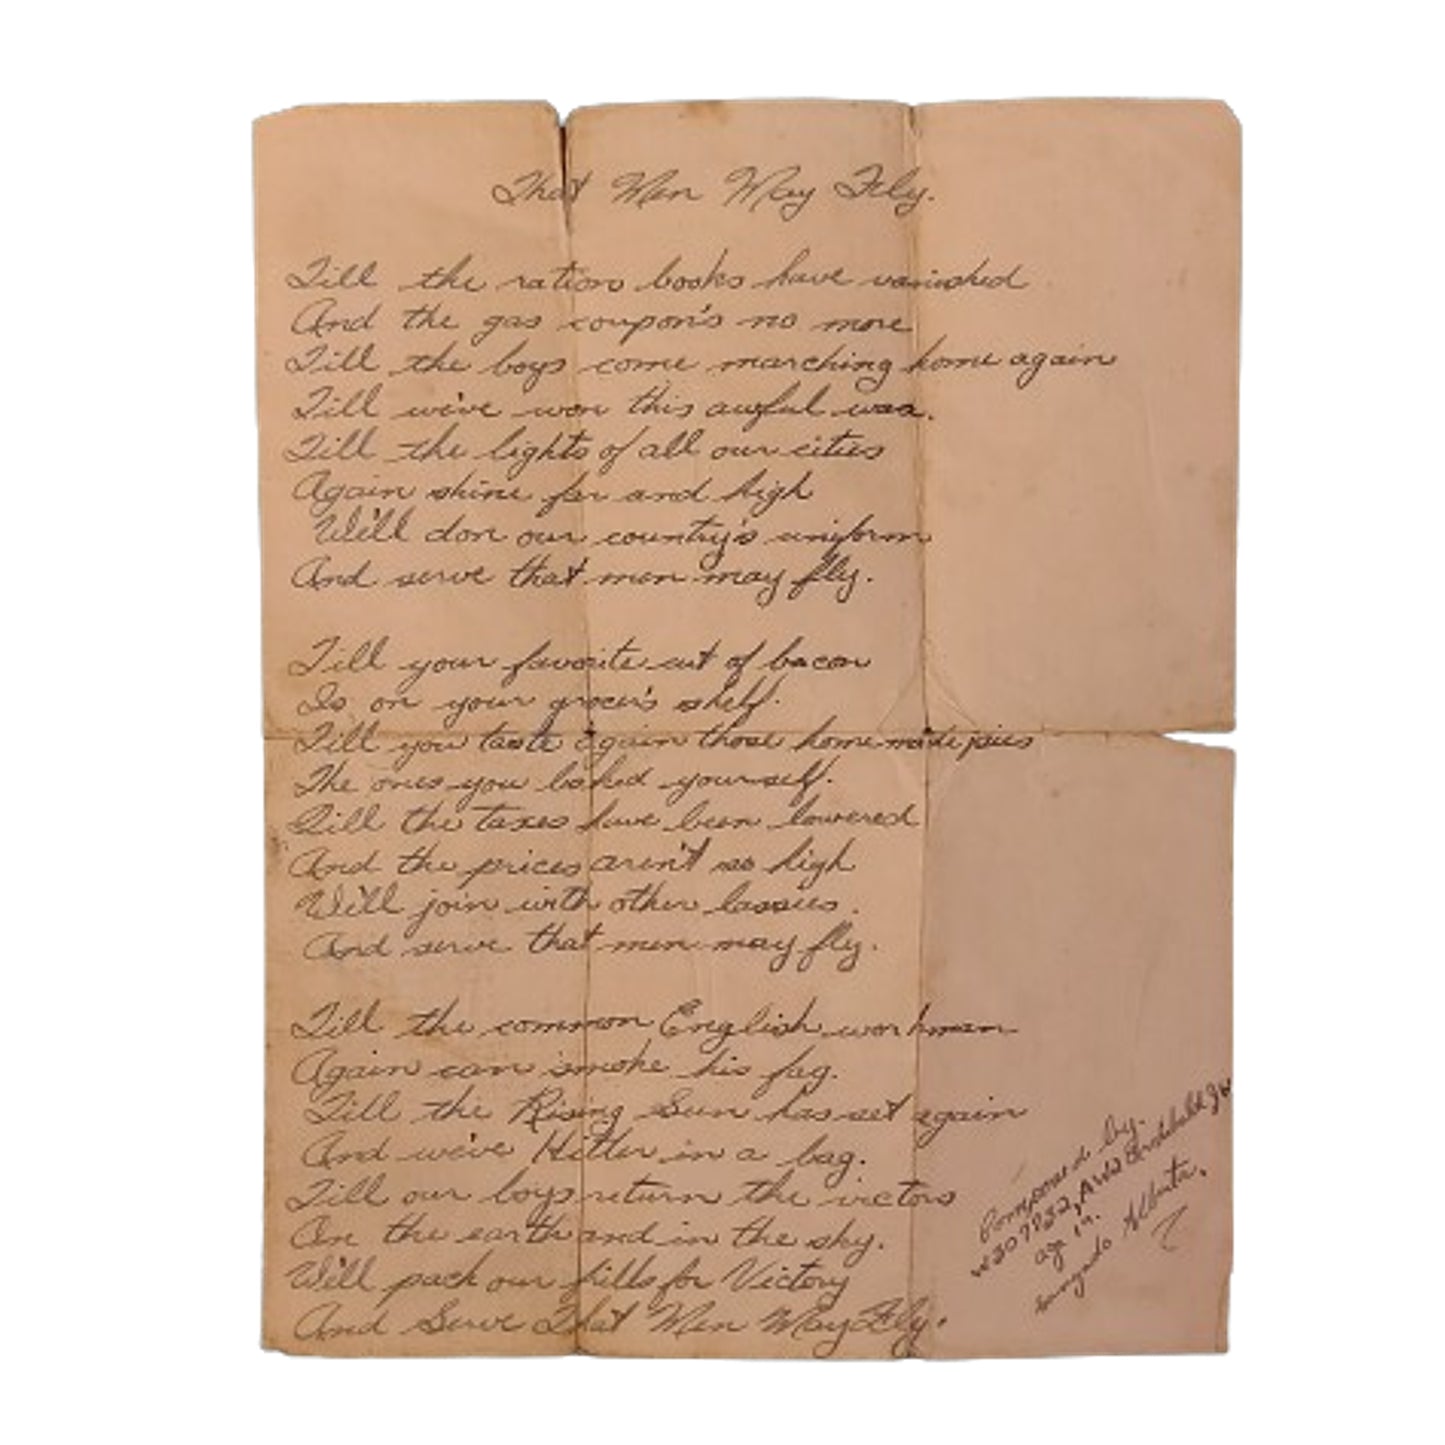 That Men May Fly.
Till the ration books have vanished
And the gas coupon's no more
Till the boys come marching home again
Till we've won this awful war.
Till the lights of all our cities
Again shine far and high
We'll don our country's uniform
And serve that men may fly.
Till your favorite cut of bacon
Is on your grocer's shelf.
Till you taste again those homemade pies
The ones you baked yourself.
Till the taxes have been lowered
And the prices aren't so high
We'll join with other lassies.
And serve that men may fly.
Till the common English workman
Again can smoke his fag.
Till the Rising Sun has set again
And we've Hitler in a bag.
Till our boys return the victors
On the earth and in the sky.
We'll pack our kills for Victory
And Serve That Men May Fly.
Composed by.
Archibald
age 19.
Alberta.